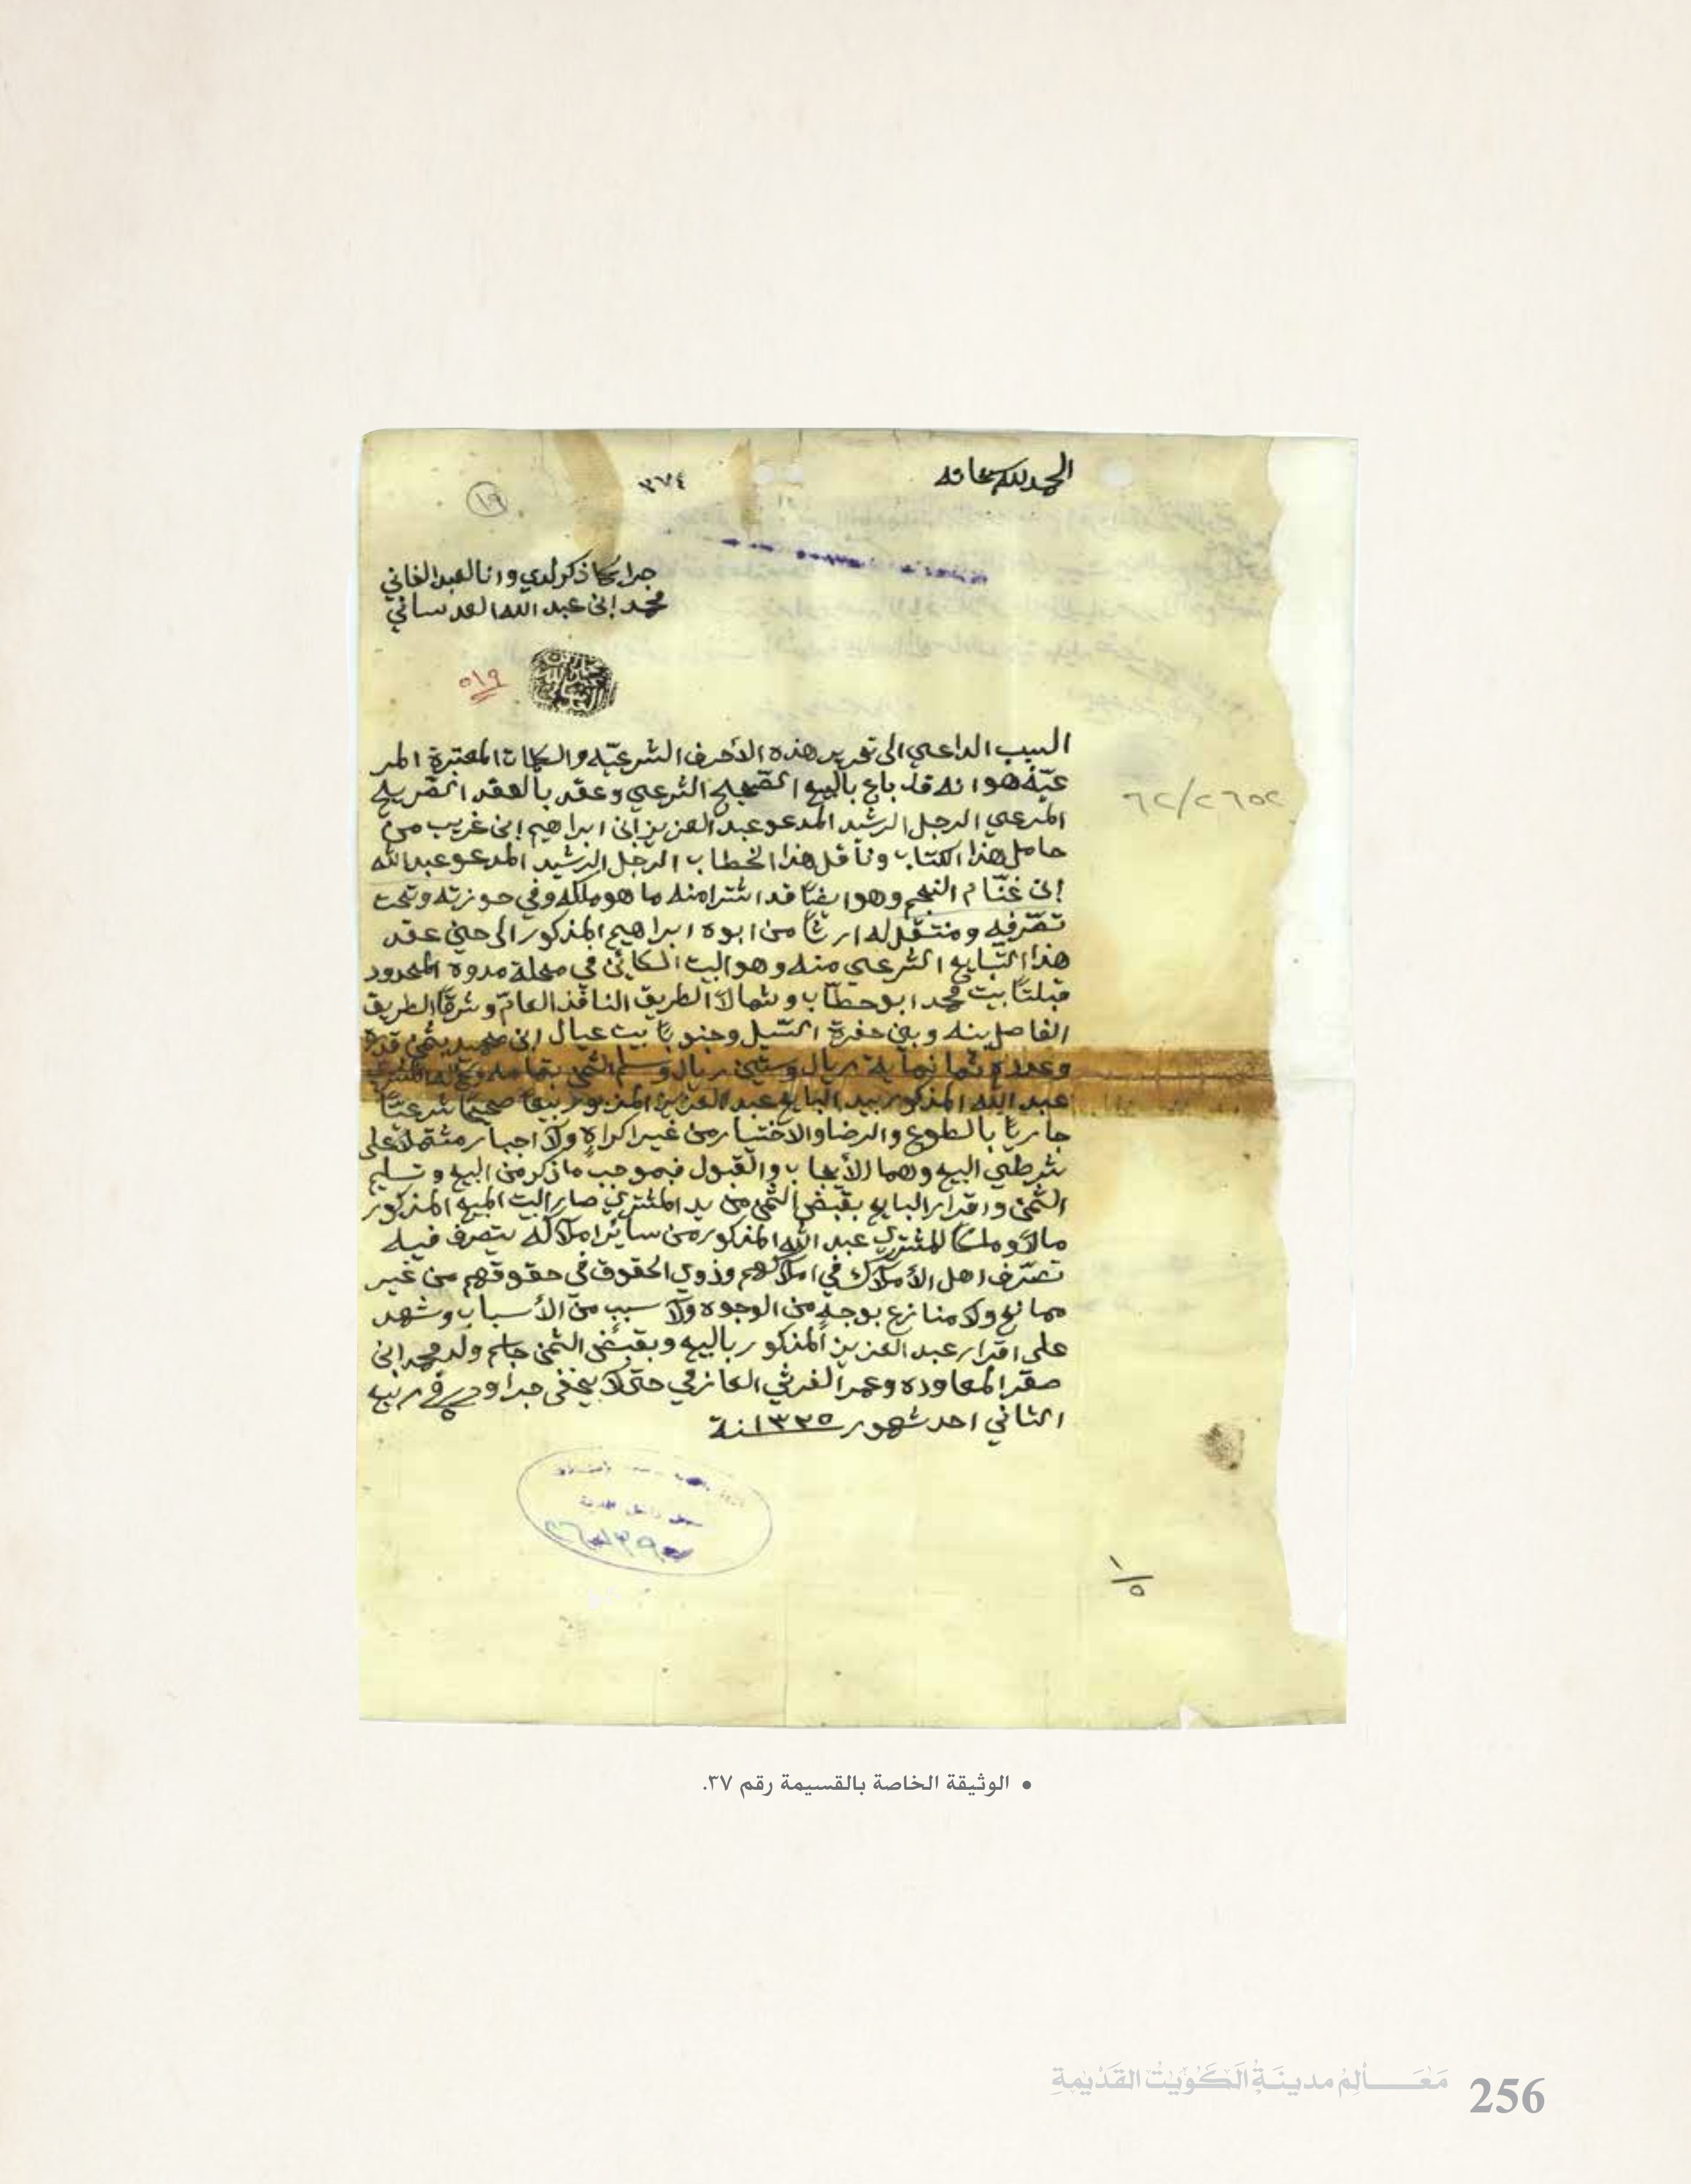 الحمد لله سبحانه
٣٧٤
١٩
جرا كما ذكر لدي وانا العبد الفاني
محمد ابن عبد الله العدساني
٥١٩
السبب الداعي الى تحرير هذه الأحرف الشرعيّه والكلمات المعتبرة المر
عيّة هو انه قد باع بالبيع الصّحيح الشرعي وعقد بالعقد الصّريح
المرعي الرجل الرشيد المدعو عبد العزيز ابن ابراهيم ابن غريب من
حامل هذا الكتاب وناقل هذا الخطاب الرجل الرشيد المدعو عبد الله
ابن غنّام النجم وهو ايضًا قد اشترا منه ما هو ملكه وفي حوزته وتحت
تصّرفه ومنتقل له ارثًا من ابوه ابراهيم المذكور الى حين عقد
هذا التّبايع الشرعي منه وهو البيت الكائن في محلة مدوه المحدود
قبلتًا بيت محمد ابو حطاب وشمالاً الطريق النافذ العامّ وشرقًا الطريق
الفاصل بينه وبين حفرة السّيل وجنوبًا بيت عيال ابن بثمن قدره
وعدده ثمانماية ريال وستين ريال وسلم الثمن بتمامه المشتري
عبد الله المذكور بيد البايع عبد العزيز المزبور بيعًا صحيحًا شرعيًّا
جاريًا بالطوع والرضا والاختيار من غير اكراهٍ ولا اجبار مشتملاً على
شرطي البيع وهما الأيجاب والقبول فبموجب ما ذكر من البيع وتسليم
الثمن واقرار البايع بقبض الثمن من يد المشتري صار البيت المبيع المذكور
مالاً وملكًا للمشتري عبد الله المذكور من ساير املاكه يتصرف فيه
تصّرف اهل الأملاك في املاكهم وذوي الحقوق في حقوقهم من غير
ممانع ولا منازع بوجهٍ من الوجوه ولا سببٍ من الأسباب وشهد
على اقرار عبد العزيز المذكور بالبيع وبقبض الثمن جاسم ولد محمد ابن
صقر المعاوده وعمر الغرثي العازمي حتى لا يخفى جرا وحرر في ٥ ربيع
الثاني احد شهور ١٣٣٥ سنة
٦٢/٢٦٥٢
سجل داخل المدينة
١/٥
• الوثيقة الخاصة بالقسيمة رقم ٣٧.
مَعَــالِمُ مدينَةِ الكُوَيْتْ القَدِيْمَةِ 256